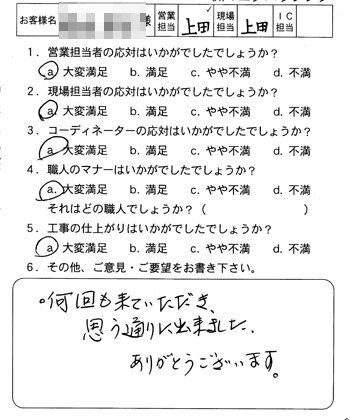 お客様名 様 営業担当 上田 現場担当 上田 IC担当
1．営業担当者の応対はいかがでしたでしょうか？
a 大変満足 b. 満足 c. やや不満 d. 不満
2．現場担当者の応対はいかがでしたでしょうか？
a. 大変満足 b. 満足 c. やや不満 d. 不満
3．コーディネーターの応対はいかがでしたでしょうか？
a 大変満足 b. 満足 c. やや不満 d. 不満
4．職人のマナーはいかがでしたでしょうか？
a. 大変満足 b. 満足 c. やや不満 d. 不満
それはどの職人でしょうか？（ ）
5．工事の仕上がりはいかがでしたでしょうか？
a 大変満足 b. 満足 c. やや不満 d. 不満
6．その他、ご意見・ご要望をお書き下さい。
。何回も来ていただき、
思う通りに出来ました、
ありがとうございます。